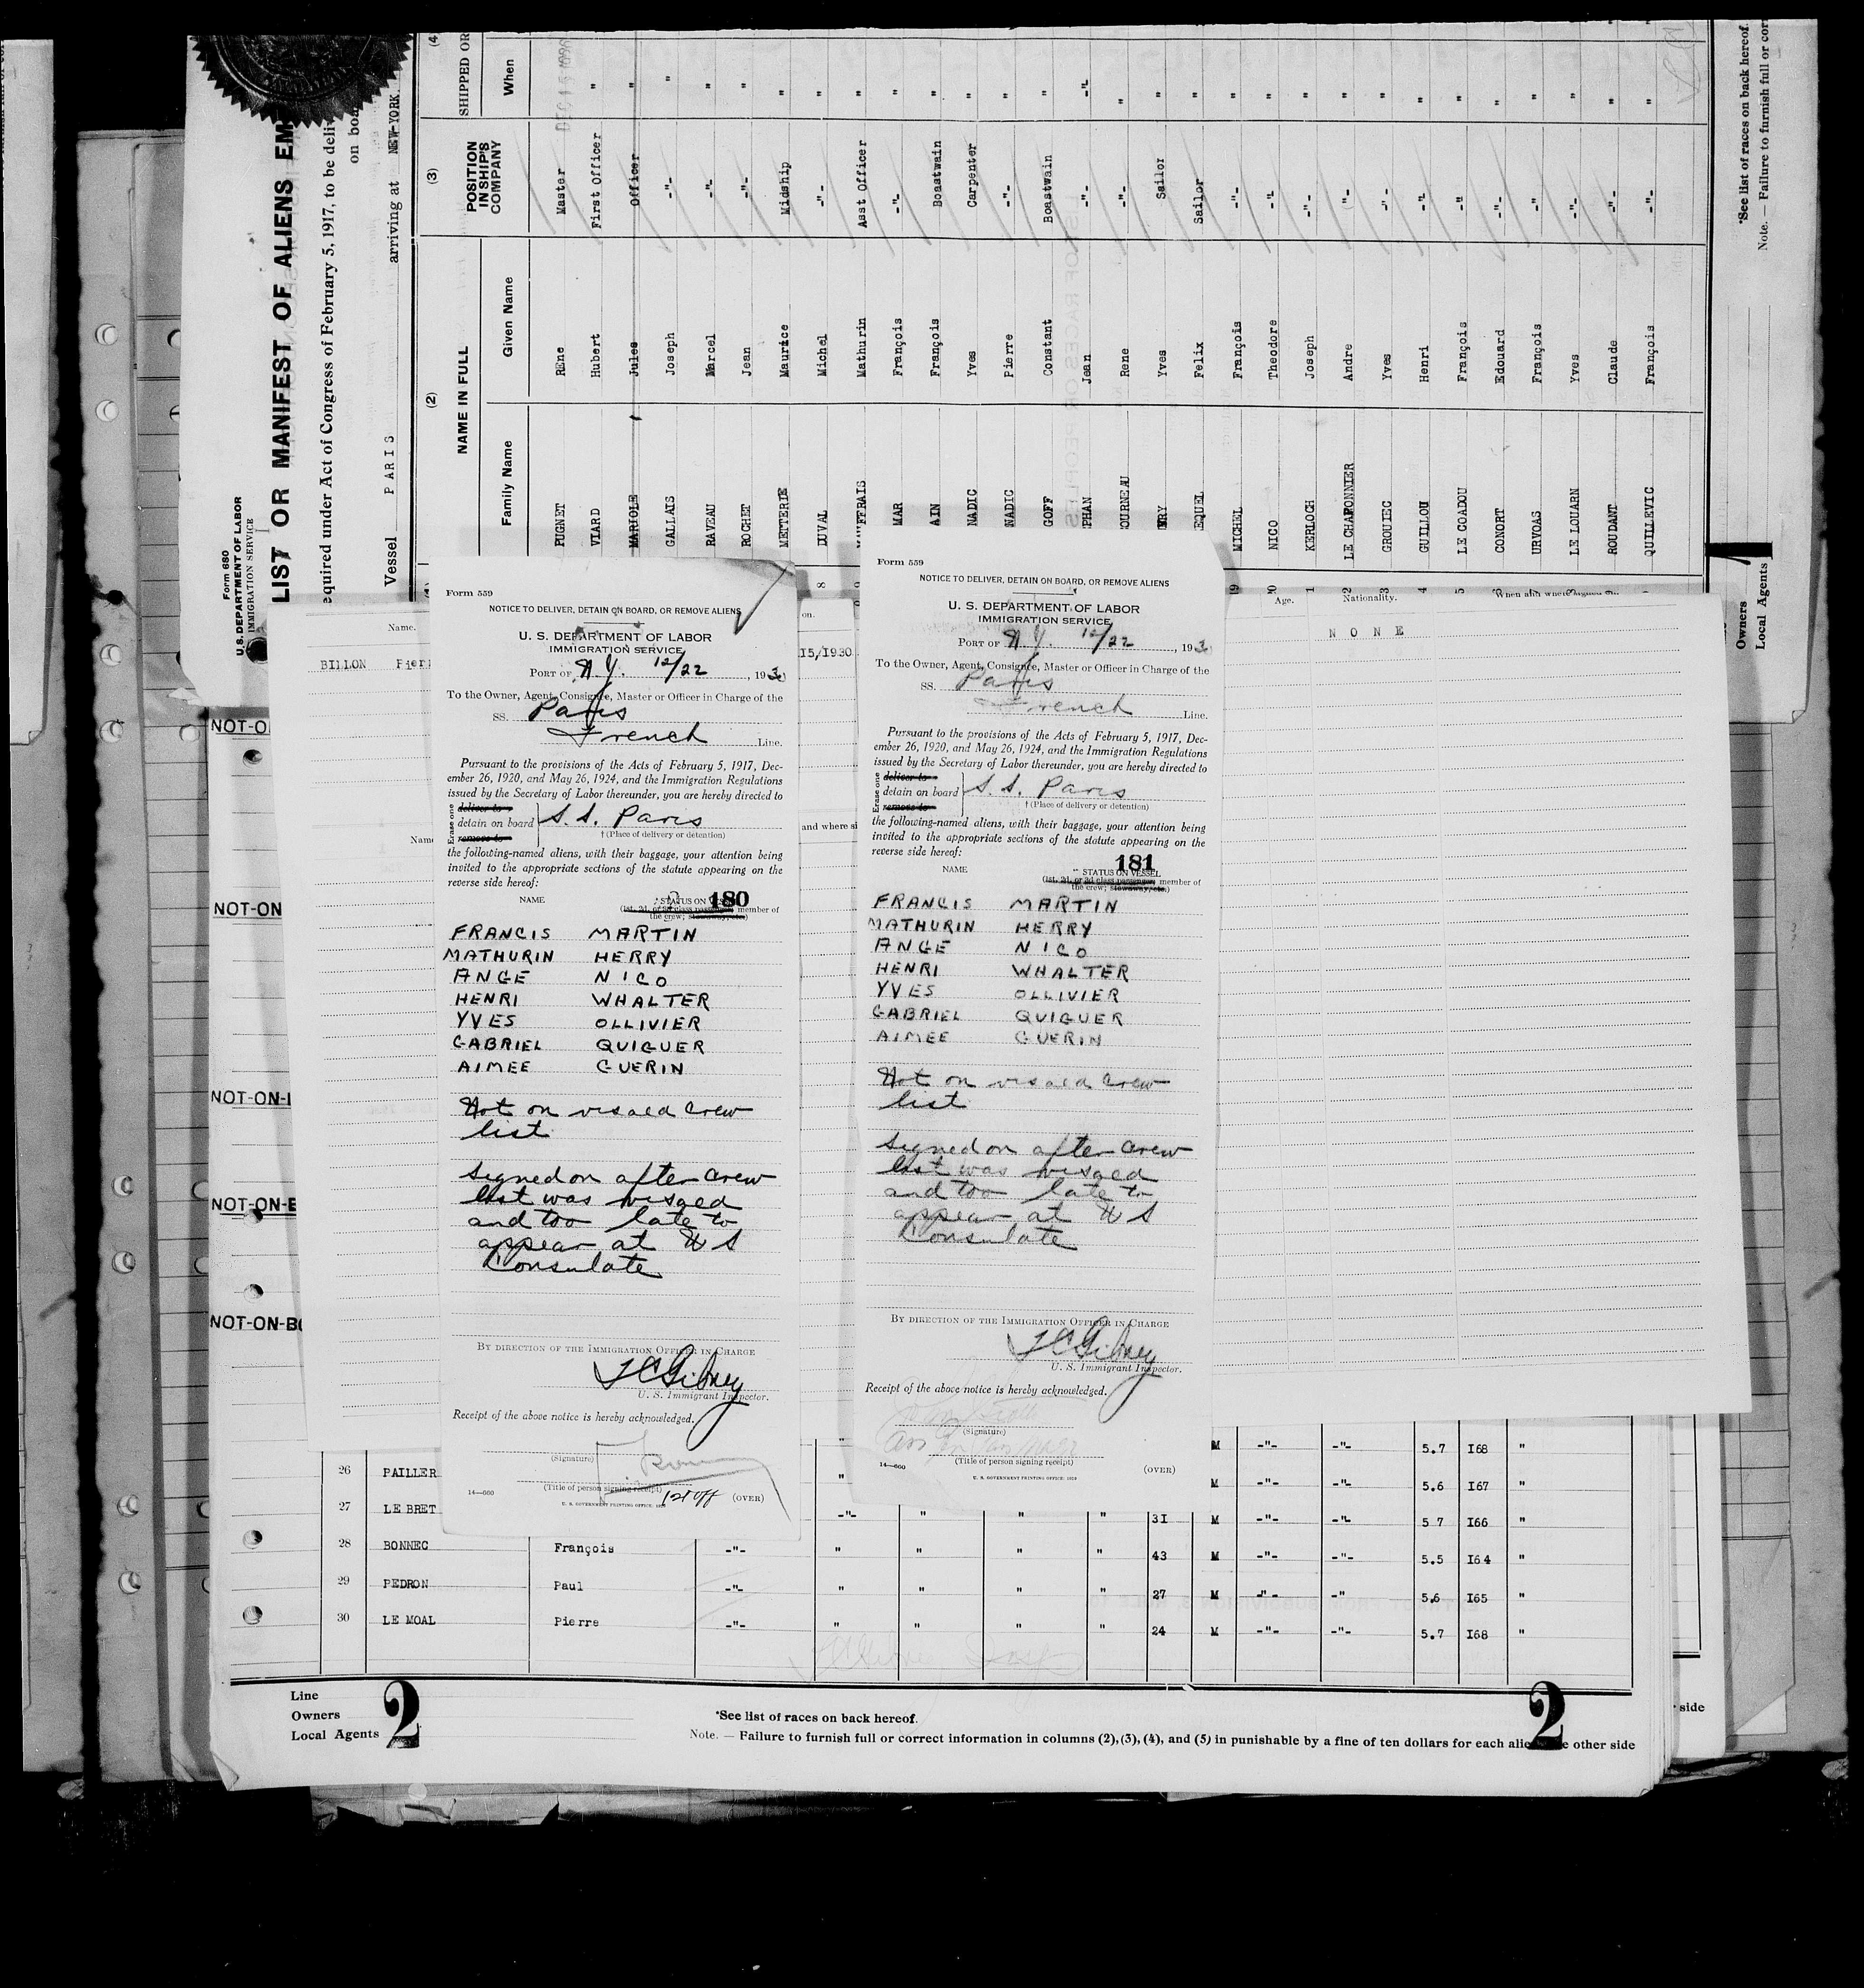 Form 680
U.S. DEPARTMENT OF LABOR
IMMIGRATION SERVICE
LIST OR MANIFEST OF ALIENS EM
equired under Act of Congress of February 5, 1917, to be deliv
on boa
Vessel PARIS arriving at NEW-YORK
(2) (3) (4
NAME IN FULL
POSITION IN SHIP'S COMPANY
SHIPPED OR
Family Name Given Name When
PUGNET Rene Master
VIARD Hubert First Officer "
MARIOLE Jules Officer "
GALLAIS Joseph -"- "
RAVEAU Marcel -"- "
ROCHET Jean -"- "
METTERIE Maurice Midship "
DUVAL Michel -"- "
Mathurin Asst Officer "
MAR François -"- "
AIN François Boastwain "
NADIC Yves Carpenter "
NADIC Pierre -"- "
GOFF Constant Boastwain "
PHAN Jean -"- -"-
OURNEAU Rene -"- "
RY Yves Sailor "
EQUEL Felix Sailor "
MICHEL François -"- "
NICO Theodore -"- "
KERLOCH Joseph -"- "
LE CHAPONNIER Andre -"- "
GROUIEC Yves -"- "
GUILLOU Henri -"- "
LE COADOU François -"- "
CONORT Edouard -"- "
URVOAS François -"- "
LE LOUARN Yves -"- "
ROUDANT Claude -"- "
QUILLEVIC François -"- "
*See list of races on back hereof.
Note. — Failure to furnish full or cor
Owners
Local Agents
Name.
BILLON Pier
on.
15/1930
Name
and where si
Age. Nationality. When and where
NONE
NOT-O
NOT-ON
NOT-ON-
NOT-ON-B
NOT-ON-BO
Form 559
NOTICE TO DELIVER, DETAIN ON BOARD, OR REMOVE ALIENS
U. S. DEPARTMENT OF LABOR
IMMIGRATION SERVICE
PORT OF N.Y. 12/22, 1930
To the Owner, Agent, Consignee, Master or Officer in Charge of the
SS. Paris
French Line.
Pursuant to the provisions of the Acts of February 5, 1917, Dec-
ember 26, 1920, and May 26, 1924, and the Immigration Regulations
issued by the Secretary of Labor thereunder, you are hereby directed to
Erase one
deliver to
detain on board S.S. Paris
remove to
†(Place of delivery or detention)
the following-named aliens, with their baggage, your attention being
invited to the appropriate sections of the statute appearing on the
reverse side hereof:
180
NAME STATUS ON
(1st, 2d, or 3d class passenger, member of
the crew; stowaway, etc.)
FRANCIS MARTIN
MATHURIN HERRY
ANGE NICO
HENRI WHALTER
YVES OLLIVIER
GABRIEL QUIGUER
AIMEE GUERIN
Not on visaed crew
list
Signed on after crew
list was visaed
and too late to
appear at U S
Consulate
BY DIRECTION OF THE IMMIGRATION OFFICER IN CHARGE
U. S. Immigrant Inspector.
Receipt of the above notice is hereby acknowledged.
(Signature)
(Title of person signing receipt)
14—660 U. S. GOVERNMENT PRINTING OFFICE: (OVER)
Form 559
NOTICE TO DELIVER, DETAIN ON BOARD, OR REMOVE ALIENS
U. S. DEPARTMENT OF LABOR
IMMIGRATION SERVICE
PORT OF N.Y. 12/22, 193
To the Owner, Agent, Consignee, Master or Officer in Charge of the
SS. Paris
French Line.
Pursuant to the provisions of the Acts of February 5, 1917, Dec-
ember 26, 1920, and May 26, 1924, and the Immigration Regulations
issued by the Secretary of Labor thereunder, you are hereby directed to
Erase one
deliver to
detain on board S.S. Paris
remove to
†(Place of delivery or detention)
the following-named aliens, with their baggage, your attention being
invited to the appropriate sections of the statute appearing on the
reverse side hereof:
181
NAME STATUS ON VESSEL
(1st, 2d, or 3d class passenger, member of
the crew; stowaway, etc.)
FRANCIS MARTIN
MATHURIN HERRY
ANGE NICO
HENRI WHALTER
YVES OLLIVIER
GABRIEL QUIGUER
AIMEE GUERIN
Not on visaed crew
list
Signed on after crew
list was visaed
and too late to
appear at U S
Consulate
BY DIRECTION OF THE IMMIGRATION OFFICER IN CHARGE
U. S. Immigrant Inspector.
Receipt of the above notice is hereby acknowledged.
(Signature)
(Title of person signing receipt)
14—660 (OVER)
M -"- -"- 5.7 I68 "
26 PAILLER " M -"- -"- 5.6 I67 "
27 LE BRET -"- " " " 3I M -"- -"- 5 7 I66 "
28 BONNEC François -"- " " " " 43 M -"- -"- 5.5 I64 "
29 PEDRON Paul -"- " " " " 27 M -"- -" 5.6 I65 "
30 LE MOAL Pierre -"- " " " " 24 M -"- -"- 5.7 I68 "
Line
Owners
Local Agents
2
*See list of races on back hereof.
Note. — Failure to furnish full or correct information in columns (2), (3), (4), and (5) in punishable by a fine of ten dollars for each alie e other side
2
side